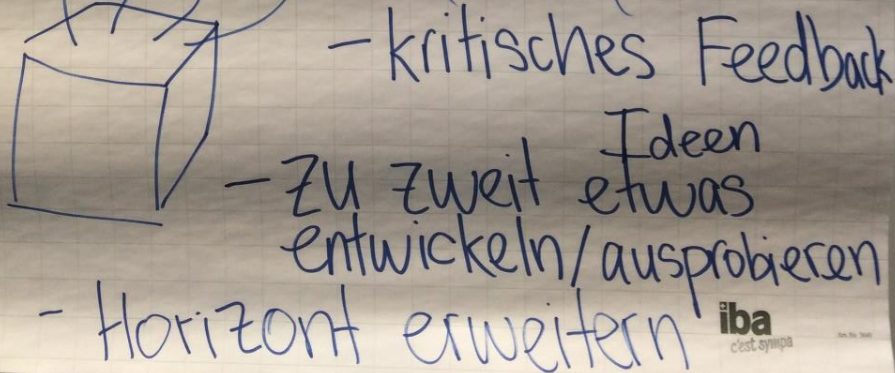 - kritisches Feedback
Ideen
- zu zweit etwas
entwickeln/ausprobieren
- Horizont erweitern
iba
c'est sympa